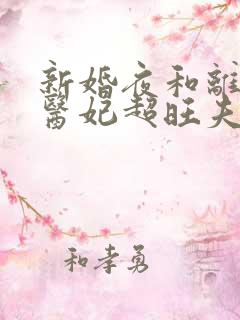 新婚夜和離
醫妃超旺夫
和孝勇